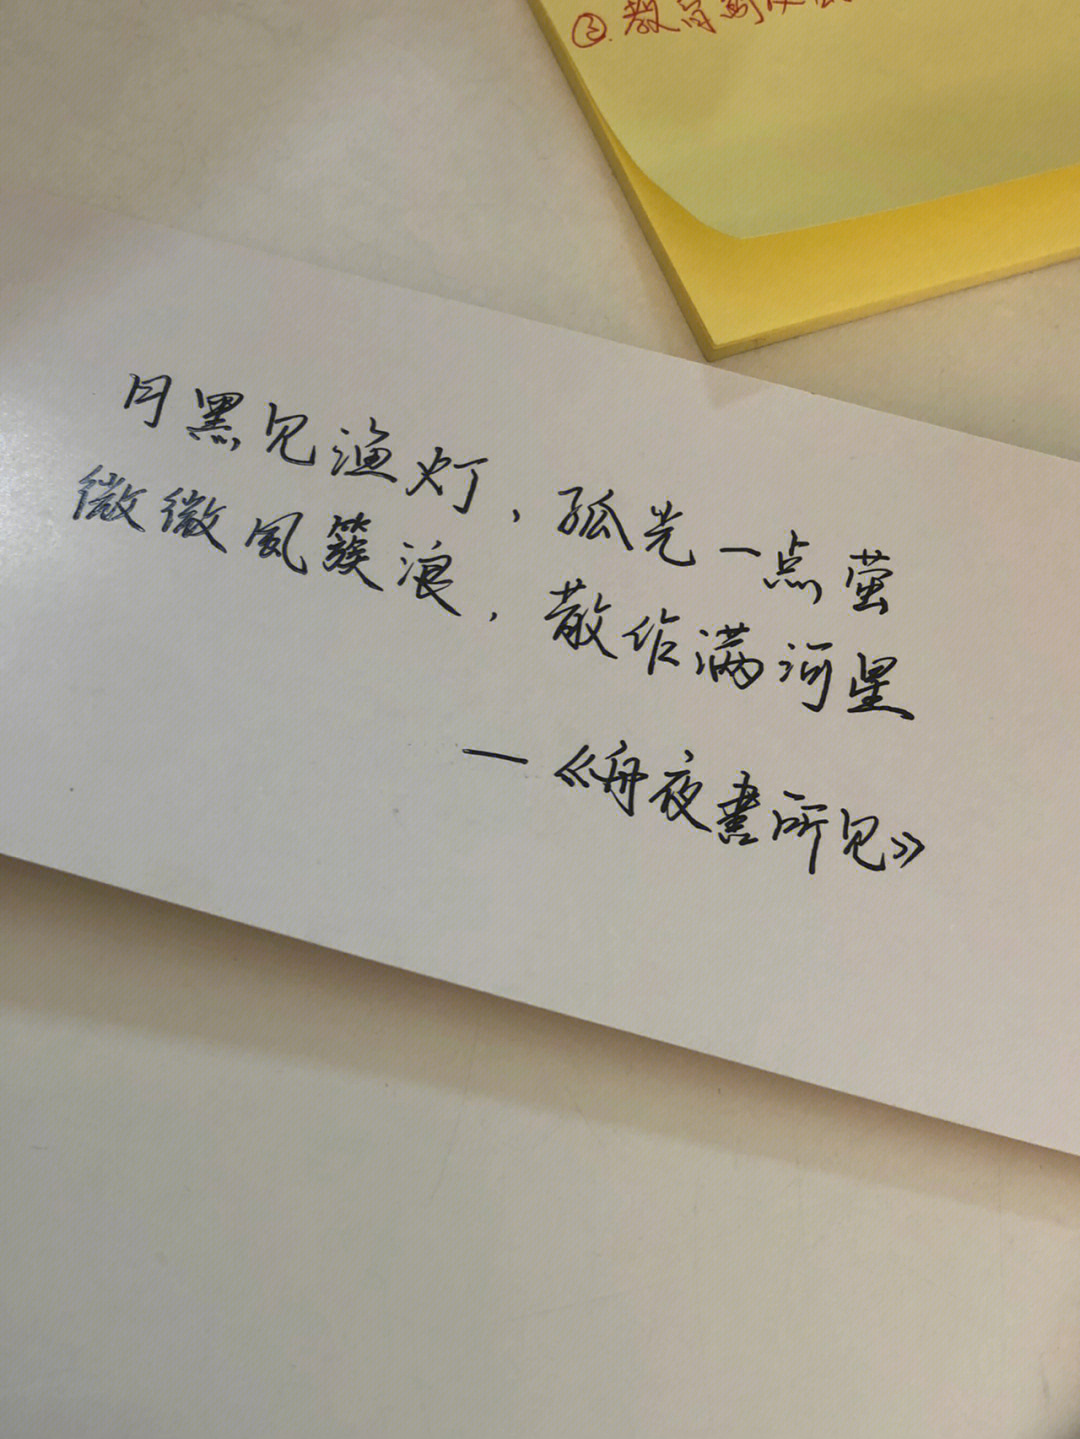 ③.教育
月黑见渔灯，孤光一点萤
微微风簇浪，散作满河星
—《舟夜書所见》